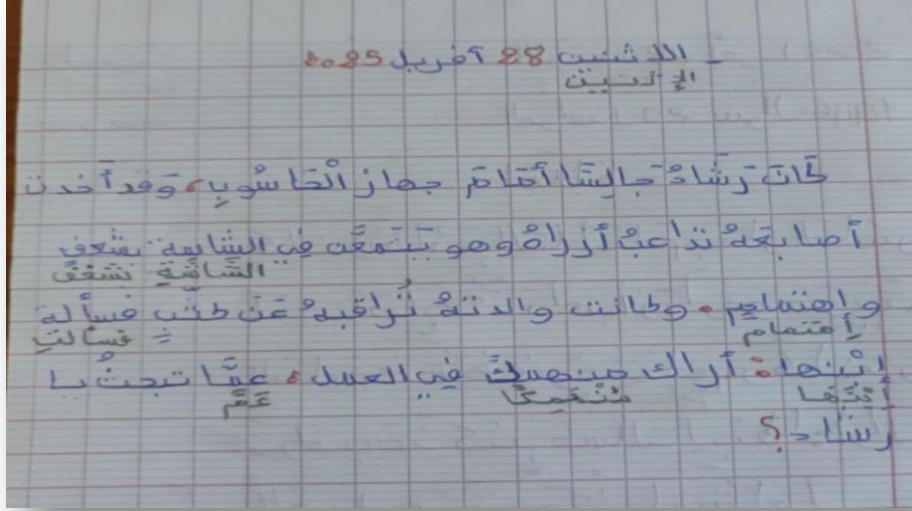 - اللاثنين 28 أفريل 2025
الإثنين
كَانَ رَشَادُ جَالِسًا أَمَامَ جهاز الْحَاسُوبِ، وَقد أخدت
أصابعَهُ تداعبُ أزراهُ وهو يَتَمعَّن فِي الشَّايشة بشغفٍ
الشَّاشَةِ بشغفٍ
واهتمامٍ. وكانت والدتهُ تُراقبهُ عَنْ كثَب فسألة
إهتمام فسألت
ابْنها: أراك منهمكً فِي العمل، عمَّا تبحثُ يا
إِبْنَهَا مُنْهَمِكًا عَمَّ
رشاد؟